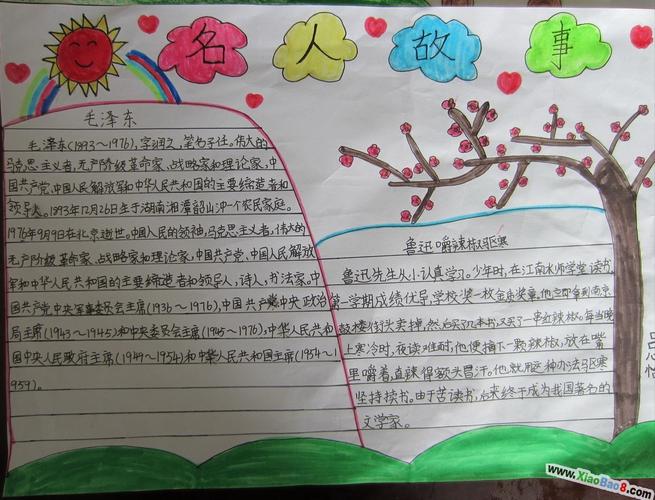 名人故事
毛泽东
毛泽东(1893～1976),字润之,笔名子任。伟大的
马克思主义者,无产阶级革命家、战略家和理论家,中
国共产党、中国人民解放军和中华人民共和国的主要缔造者和
领导人。1893年12月26日生于湖南湘潭韶山冲一个农民家庭。
1976年9月9日在北京逝世。中国人民的领袖,马克思主义者,伟大的
无产阶级革命家、战略家和理论家,中国共产党、中国人民解放
军和中华人民共和国的主要缔造者和领导人,诗人,书法家,中
国共产党中央军事委员会主席(1936～1976),中国共产党中央政治
局主席(1943～1945)和中央委员会主席(1945～1976),中华人民共和
国中央人民政府主席(1949～1954)和中华人民共和国主席(1954～1
959)。
鲁迅嚼辣椒驱寒
鲁迅先生从小认真学习。少年时,在江南水师学堂读书
第一学期成绩优异,学校奖一枚金质奖章。他立即拿到南京
鼓楼街头卖掉,然后买了几本书,又买了一串红辣椒。每当晚
上寒冷时,夜读难耐,他便摘下一颗辣椒,放在嘴
里嚼着,直辣得额头冒汗。他就用这种办法驱寒
坚持读书。由于苦读书,后来终于成为我国著名的
文学家。
www.XiaoBao8.com